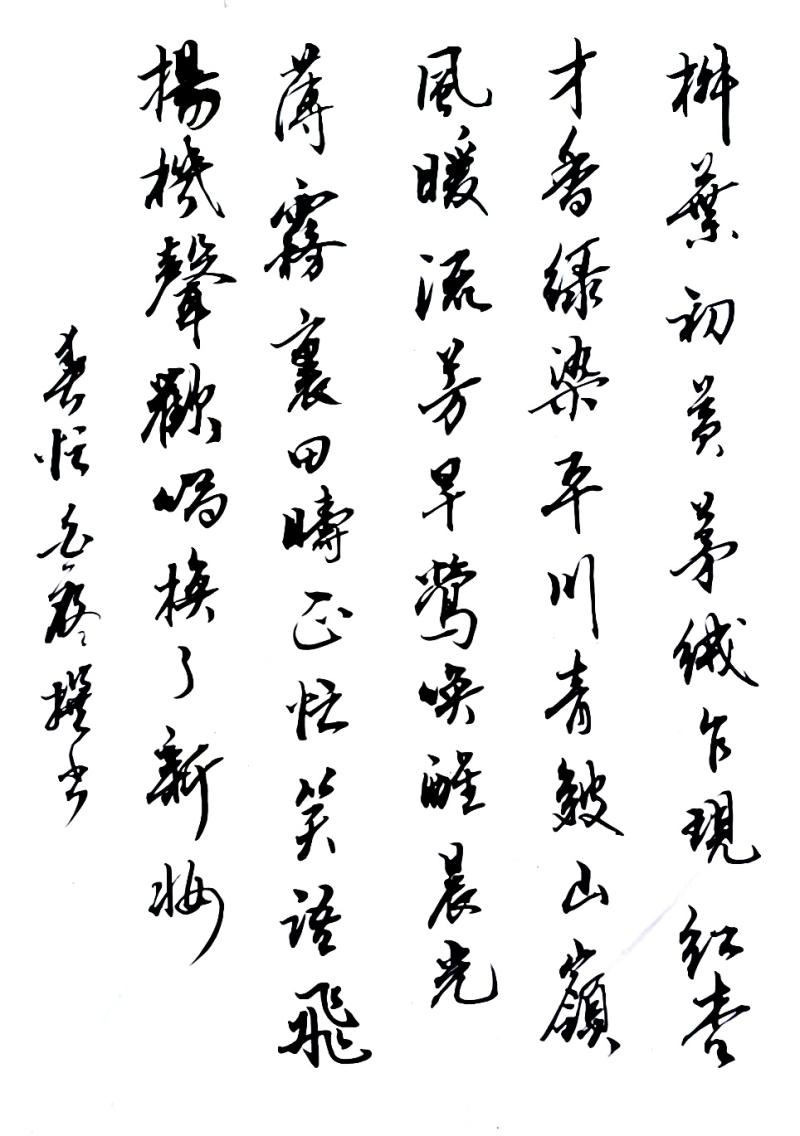 柳葉初黄茅絨乍現紅杏
才香緑染平川青皴山嶺
風暖流芳早鶯喚醒晨光
薄霧裏田疇正忙笑語飛
揚機聲歡唱換了新妝
春忙 撰書